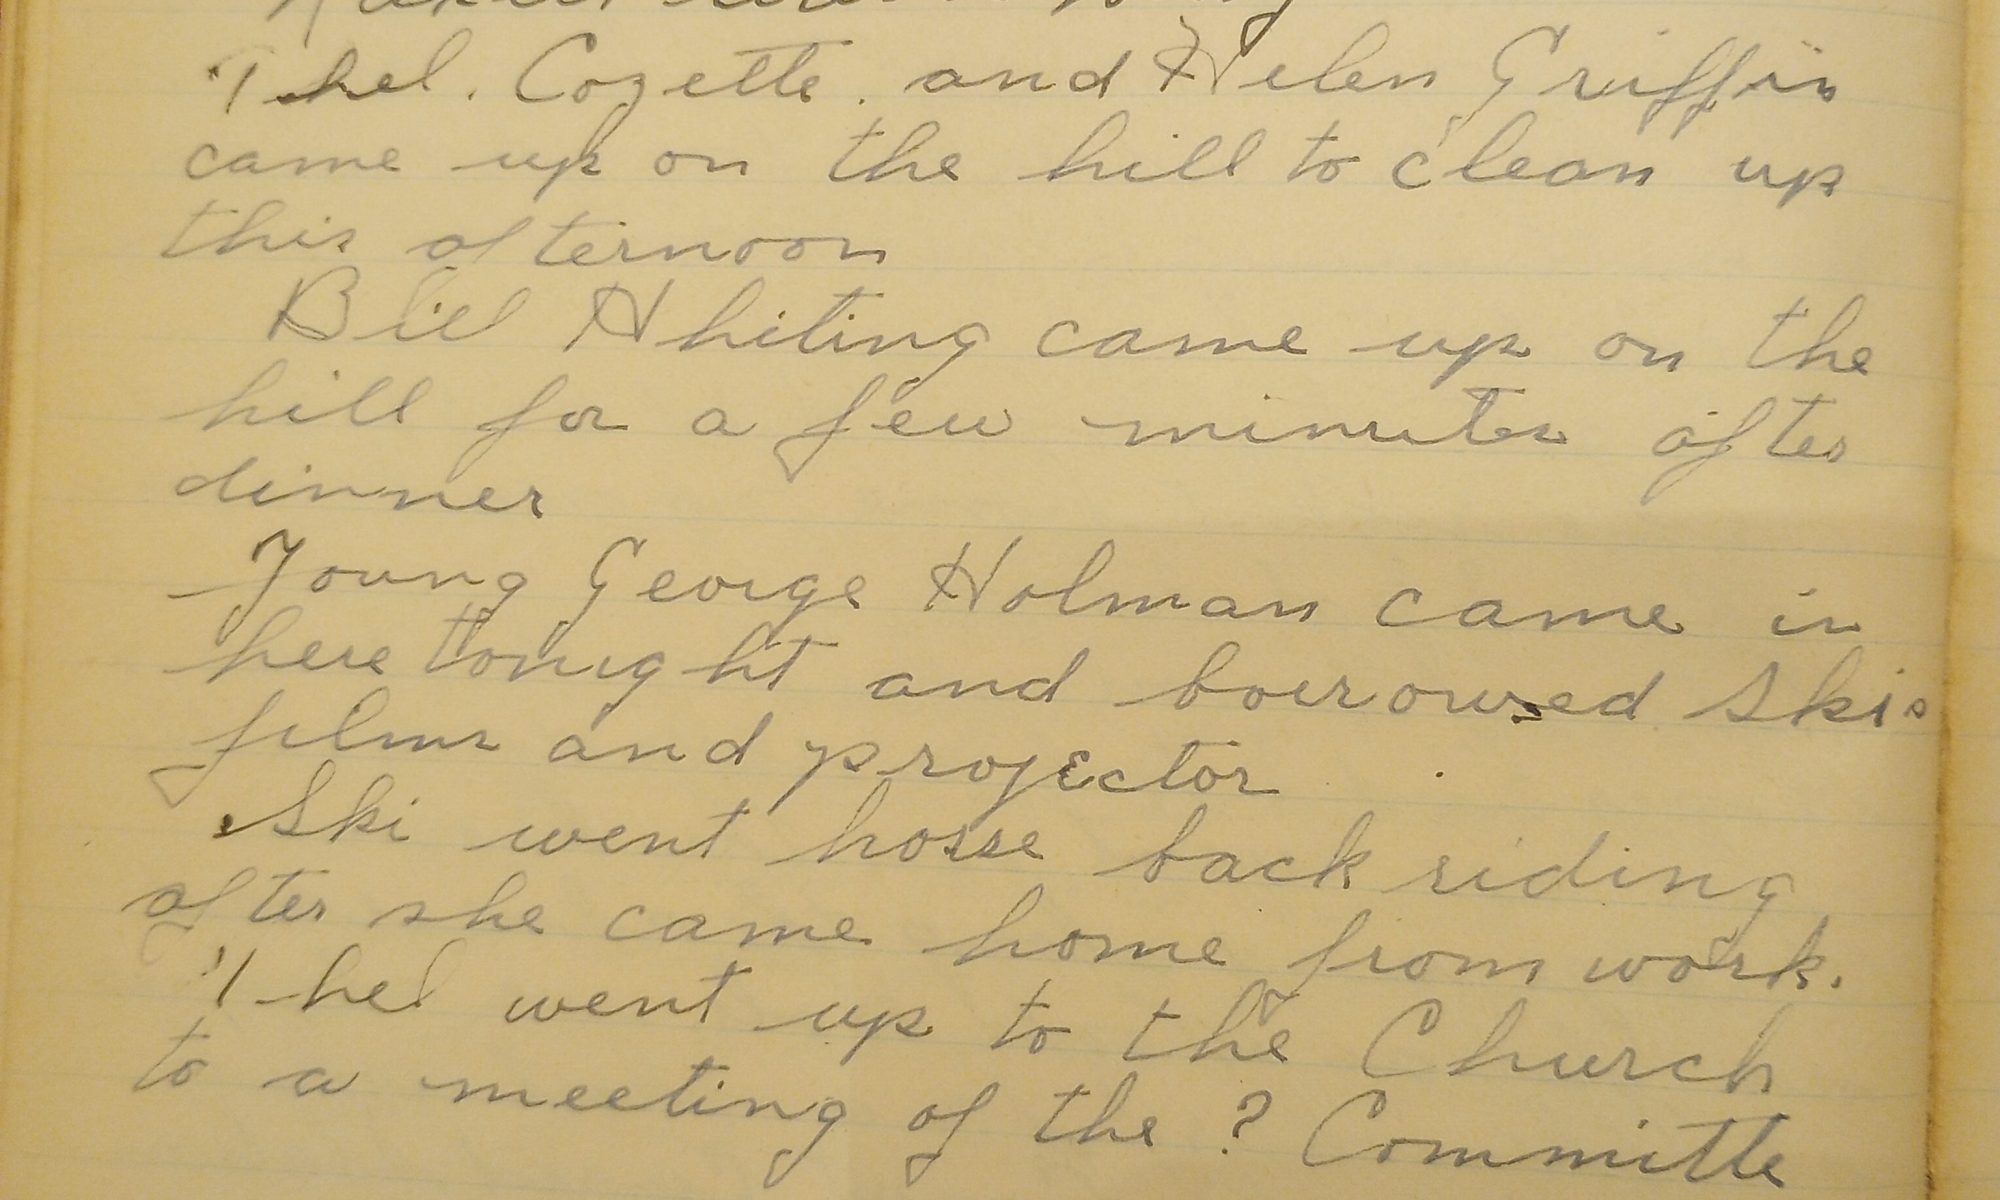 Thel. Cozette. and Helen Griffin
came up on the hill to clean up
this afternoon
Bill Whiting came up on the
hill for a few minutes after
dinner
Young George Holman came in
here tonight and borrowed Skis
films and projector
Ski went horse back riding
after she came home from work.
Thel went up to the Church
to a meeting of the ? Committe